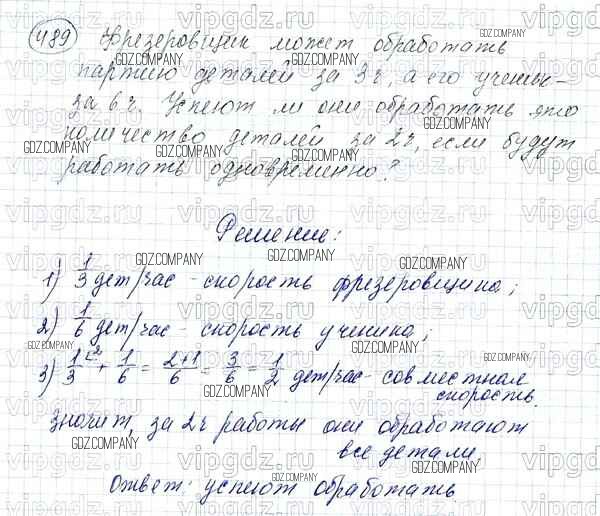 489 Фрезеровщик может обработать
партию деталей за 3 ч, а его ученик –
за 6 ч. Успеют ли они обработать это
количество деталей за 2 ч, если будут
работать одновременно?
Решение:
1) 1/3 дет/час - скорость фрезеровщика;
2) 1/6 дет/час - скорость ученика;
3) 1/3 ⌞2 + 1/6 = 2+1/6 = 3/6 = 1/2 дет/час - совместная
скорость.
значит, за 2 ч работы они обработают
все детали.
Ответ: успеют обработать
vipgdz.ru
GDZ.COMPANY